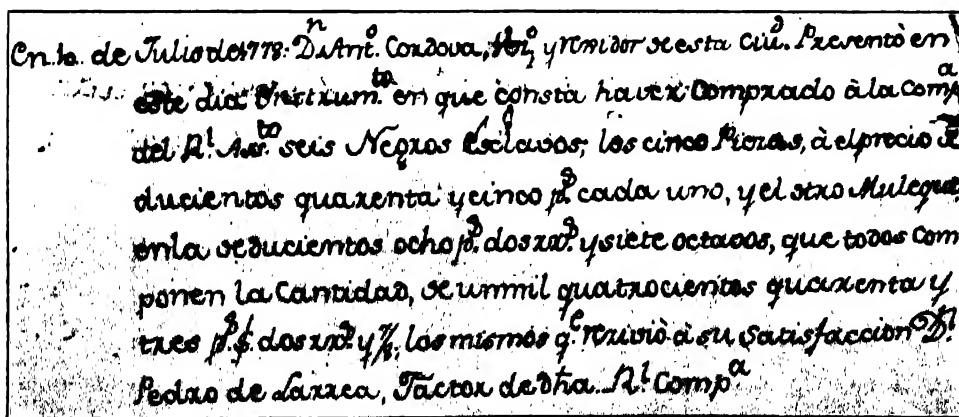 En 10. de Julio de 1778. Dn. Anto. Cordova, Vzno, y rexidor de esta Ciud. Presentò en
este dia Instrumto. en que consta haver Comprado à la Compa
del Rl. Assto. seis Negros Esclavos; los cinco Piezas, à el precio de
ducientos quarenta y cinco ps. cada uno, y el otro Muleque,
en la de ducientos ocho ps. dos rrs. y siete octavos, que todos com
ponen la Cantidad, de un mil quatrocientos quarenta y
tres ps. $. dos rrs. y 7/8; los mismos qe. rezivió à su Satisfaccion Dn.
Pedro de Larrea, Factor de dha. Rl. Compa